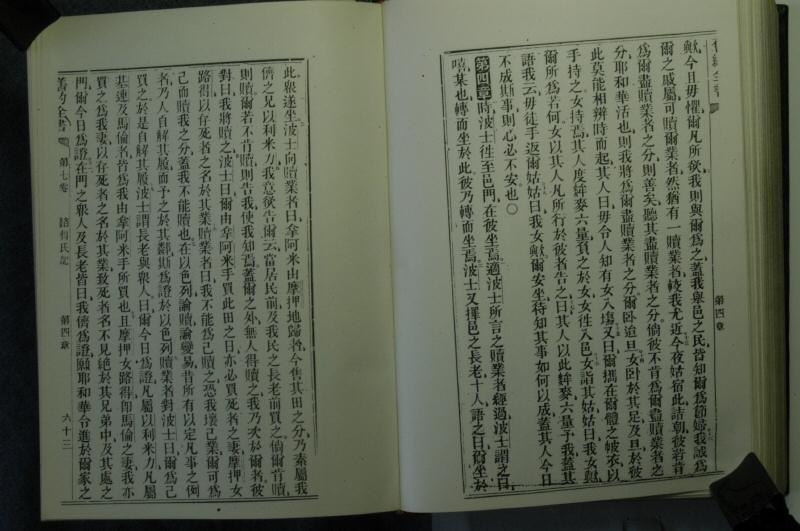 舊約全書
第四章
歟今日毋懼爾凡所欲我則與爾爲之蓋我與邑之民皆知爾爲節婦我誠爲
爾之戚屬可贖爾業者然猶有一贖業者較我尤近今夜姑宿此詰朝彼若肯
爲爾盡贖業者之分則善矣聽其盡贖業者之分倘彼不肯爲爾盡贖業者之
分耶和華活也則我將爲爾盡贖業者之分爾卧迨旦女卧於其足及旦於彼
此莫能相辨時而起其人曰毋令人知有女入塲又曰爾攜在爾體之帔衣以
手持之女持焉其人度麰麥六量負之於女女往入邑女詣其姑姑曰我女歟
爾所爲若何女以其人凡所行於彼者告之曰其人以此麰麥六量予我蓋其
語我云毋徒手返爾姑姑曰我女歟爾安坐待知其事如何以成蓋其人今日
不成斯事則心必不安也○
第四章時波士往至邑門在彼坐焉適波士所言之贖業者經過波士謂之曰
嘻某也轉而坐於此彼乃轉而坐焉波士又擇邑之長老十人語之曰爾坐於
此衆遂坐波士向贖業者曰拿阿米由摩押地歸者今售其田之分乃素屬我
儕之兄以利米力我意欲告爾云當居民前及我民之長老前買之倘爾肯贖
則贖爾若不肯贖則告我使我知焉蓋爾之外無人得贖之我乃次於爾者彼
對曰我將贖之波士曰爾由拿阿米手買此田之日亦必買死者之妻摩押女
路得以存死者之名於其業贖業者曰我不能爲己贖之恐我壞己業爾可爲
己而贖我之分蓋我不能贖也在以色列論贖論變易昔所有以定凡事之例
者乃人自解其履而予之於其鄰斯爲證於以色列贖業者對波士曰爾爲己
買之於是自解其履波士謂長老與衆人曰爾今日爲證凡屬以利米力凡屬
基連及馬倫名皆爲我由拿阿米手所買也且摩押女路得卽馬倫之妻我亦
買之爲我妻以存死者之名於其業致死者名不見絕於其兄弟中及其處之
門爾今日爲證在門之衆人及長老皆曰我儕爲證願耶和華令進於爾家之
舊約全書
第七卷
路得氏記
第四章
六十三